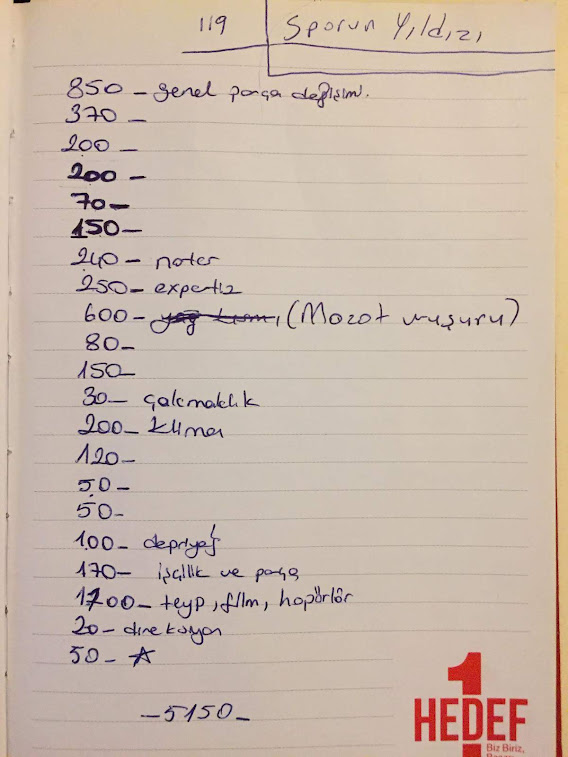 119 Sporun Yıldızı
850 - genel parça değişimi.
370 -
200 -
200 -
70 -
150 -
240 - noter
250 - expertiz
600 - yağ kısmı (Mazot
80 -
150 -
30 - çakmaklık
200 - klima
120 -
50 -
50 -
100 - depriyaj
170 - işçilik ve parça
1200 - teyp, film, hopörlör
20 - direksiyon
50 - ☆
- 5150 -
1
HEDEF
Biz Biriz,